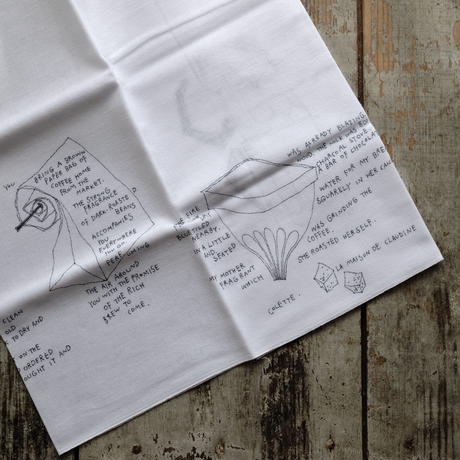 YOU
BRING A BROWN
PAPER BAG OF
COFFEE HOME
FROM THE
MARKET.
THE STRONG
FRAGRANCE
OF DARK-ROASTED
BEANS
ACCOMPANIES
YOU
EVERYWHERE
YOU GO
PERFUMING
THE AIR AROUND
YOU WITH THE PROMISE
OF THE RICH
BREW TO
COME.
CLEAN
OLD
TO DRY AND
ON THE
ORDERED
OUGHT IT AND
THE FIRE
NEARBY.
IN A LITTLE
AND SEATED
MY MOTHER
FRAGRANT
WHICH
WAS ALREADY BLAZING
CHARCOAL STOVE
A BAR OF CHOCOLA
WATER FOR MY BRE
SQUARELY IN HER CAN
WAS GRINDING THE
COFFEE.
SHE ROASTED HERSELF.
LA MAISON DE CLAUDINE
COLETTE.